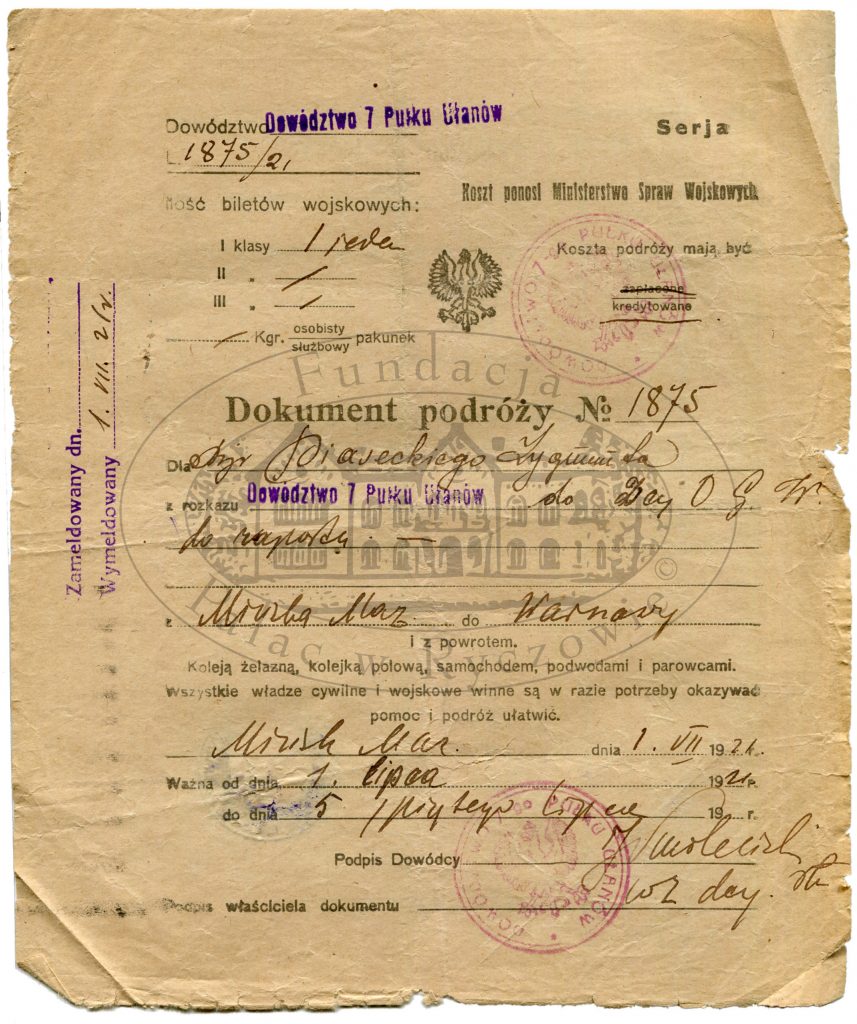 Dowództwo Dowództwo 7 Pułku Ułanów
Serja
L. 1875/21
Ilość biletów wojskowych:
Koszt ponosi Ministerstwo Spraw Wojskowych
I klasy 1 jeden
II " /
III " /
Koszta podróży mają być
zapłacone
kredytowane
/ Kgr. osobisty
służbowy pakunek
DOWÓDZTWO 7-go PUŁKU UŁANÓW
Zameldowany dn.
Wymeldowany 1. VII. 21 r.
Fundacja
Pałac w Ryczowie ©
Dokument podróży № 1875
Dla Piaseckiego Zygmunta
z rozkazu Dowództwo 7 Pułku Ułanów do O. G. W.
do raportu. —
z Mińska Maz. do Warszawy
i z powrotem.
Koleją żelazną, kolejką polową, samochodem, podwodami i parowcami.
Wszystkie władze cywilne i wojskowe winne są w razie potrzeby okazywać
pomoc i podróż ułatwić.
Mińsk Maz. dnia 1. VII 1921 r.
Ważna od dnia 1. lipca 1921 r.
do dnia 5 /piątego lipca 19 r.
Podpis Dowódcy
Podpis właściciela dokumentu
DOWÓDZTWO 7-go PUŁKU UŁANÓW